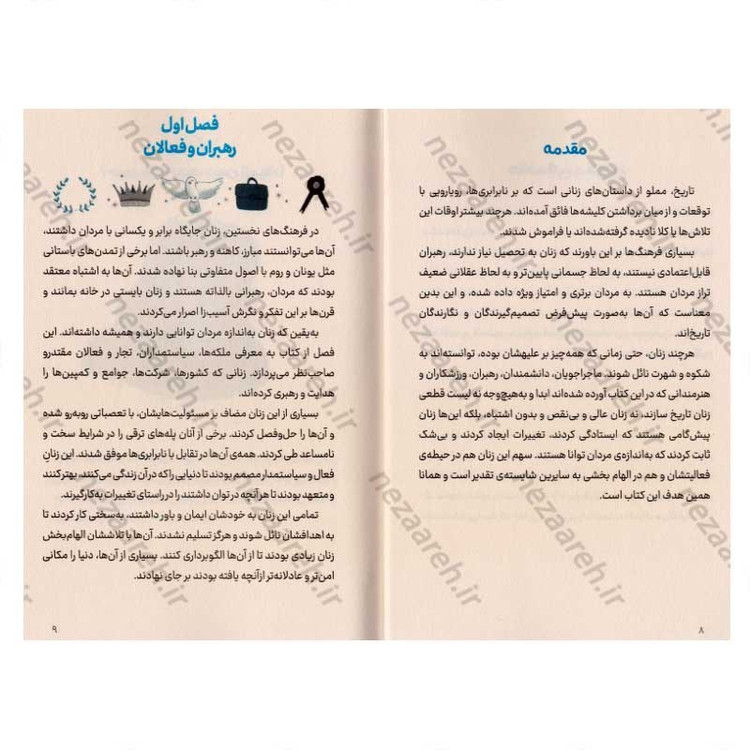 مقدمه
تاریخ، مملو از داستان‌های زنانی است که بر نابرابری‌ها، رویارویی با
توقعات و از میان برداشتن کلیشه‌ها فائق آمده‌اند. هرچند بیشتر اوقات این
تلاش‌ها یا کلا نادیده گرفته‌شده‌اند یا فراموش شدند.
بسیاری فرهنگ‌ها بر این باورند که زنان به تحصیل نیاز ندارند، رهبران
قابل‌اعتمادی نیستند، به لحاظ جسمانی پایین‌تر و به لحاظ عقلانی ضعیف
تراز مردان هستند. به مردان برتری و امتیاز ویژه داده شده، و این بدین
معناست که آن‌ها به‌صورت پیش‌فرض تصمیم‌گیرندگان و نگارندگان
تاریخ‌اند.
هرچند زنان، حتی زمانی که همه‌چیز بر علیهشان بوده، توانسته‌اند به
شکوه و شهرت نائل شوند. ماجراجویان، دانشمندان، رهبران، ورزشکاران و
هنرمندانی که در این کتاب آورده شده‌اند ابدا و به‌هیچ‌وجه نه لیست قطعی
زنان تاریخ سازند، نه زنان عالی و بی‌نقص و بدون اشتباه، پلکه این‌ها زنان
پیش‌گامی هستند که ایستادگی کردند، تغییرات ایجاد کردند و بی‌شک
ثابت کردند که به‌اندازه‌ی مردان توانا هستند. سهم این زنان هم در حیطه‌ی
فعالیتشان و هم در الهام بخشی به سایرین شایسته‌ی تقدیر است و همانا
همین هدف این کتاب است.
۸
فصل اول
رهبران و فعالان
در فرهنگ‌های نخستین، زنان جایگاه برابر و یکسانی با مردان داشتند،
آن‌ها می‌توانستند مبارز، کاهنه و رهبر باشند. اما برخی از تمدن‌های باستانی
مثل یونان و روم با اصول متفاوتی بنا نهاده شدند. آن‌ها به اشتباه معتقد
بودند که مردان، رهبرانی بالذاته هستند و زنان بایستی در خانه بمانند و
قرن‌ها بر این تفکر و نگرش آسیب‌زا اصرار می‌کردند.
به‌یقین که زنان به‌اندازه مردان توانایی دارند و همیشه داشته‌اند. این
فصل از کتاب به معرفی ملکه‌ها، سیاستمداران، تجار و فعالان مقتدرو
صاحب‌نظر می‌پردازد. زنانی که کشورها، شرکت‌ها، جوامع و کمپین‌ها را
هدایت و رهبری کرده‌اند.
بسیاری از این زنان مضاف بر مسئولیت‌هایشان، با تعصباتی روبه‌رو شده
و آن‌ها را حل‌وفصل کردند. برخی از آنان پله‌های ترقی را در شرایط سخت و
نامساعد طی کردند. همه‌ی آن‌ها در تقابل با نابرابری‌ها موفق شدند. این زنانِ
فعال و سیاستمدار مصمم بودند تا دنیایی را که در آن زندگی می‌کنند، بهتر کنند
و متعهد بودند تا هر آنچه در توان داشتند را در راستای تغییرات به‌کارگیرند.
تمامی این زنان به خودشان ایمان و باور داشتند، به‌سختی کار کردند تا
به اهدافشان نائل شوند و هرگز تسلیم نشدند. آن‌ها با تلاششان الهام‌بخش
زنان زیادی بودند تا از آن‌ها الگوبرداری کنند. بسیاری از آن‌ها، دنیا را مکانی
امن‌تر و عادلانه‌تر ازآنچه یافته بودند بر جای نهادند.
۹
nezaareh.ir